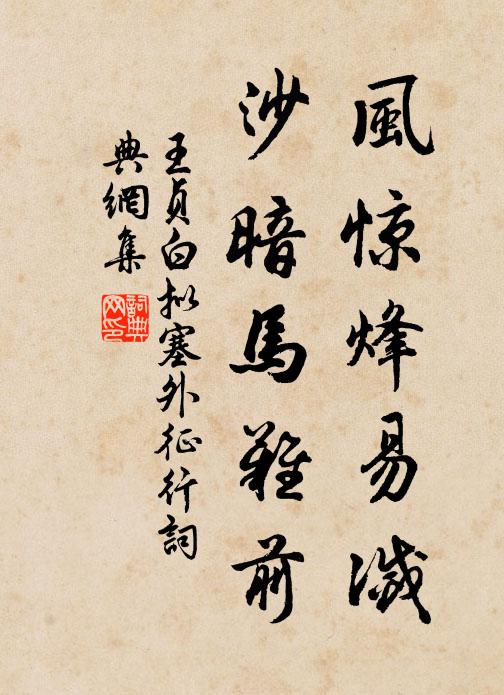 風惊烽易滅
沙暗馬難前
王貞白拟塞外征行詞
典網集
詞典
网印